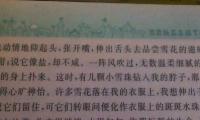 动情地仰起头，张开嘴，伸出舌头去品尝雪花的滋味
甜，说它像盐，却不咸。一阵风吹过，无数温柔细腻的
的身上扑来。这时，有几颗小雪珠钻入我的脖子，那
得心旷神怡。许多雪花落在我的衣服上，我想伸出
它们留住，可它们转眼间便化作衣服上的斑斑水珠